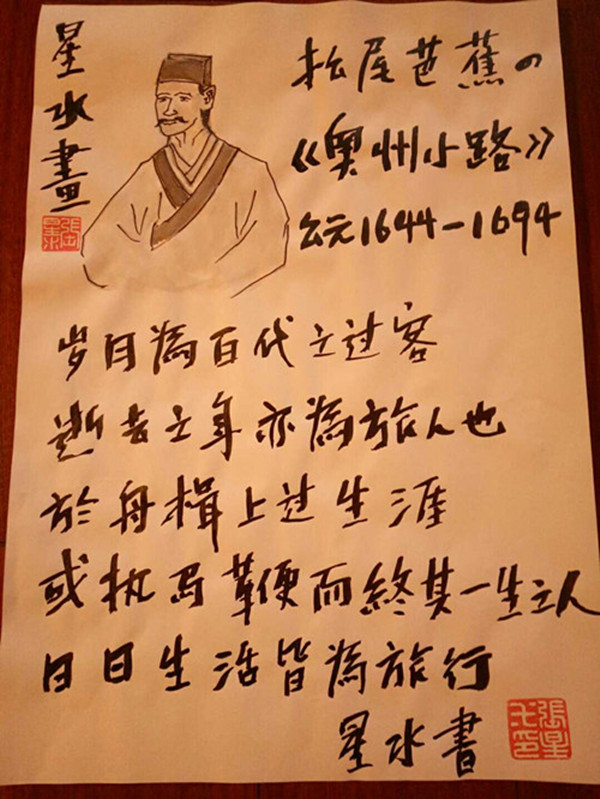 星水畫
松尾芭蕉の
《奥州小路》
公元1644-1694
岁月為百代之过客
逝去之年亦為旅人也
於舟楫上过生涯
或执马鞭便而終其一生之人
日日生活皆為旅行
星水書